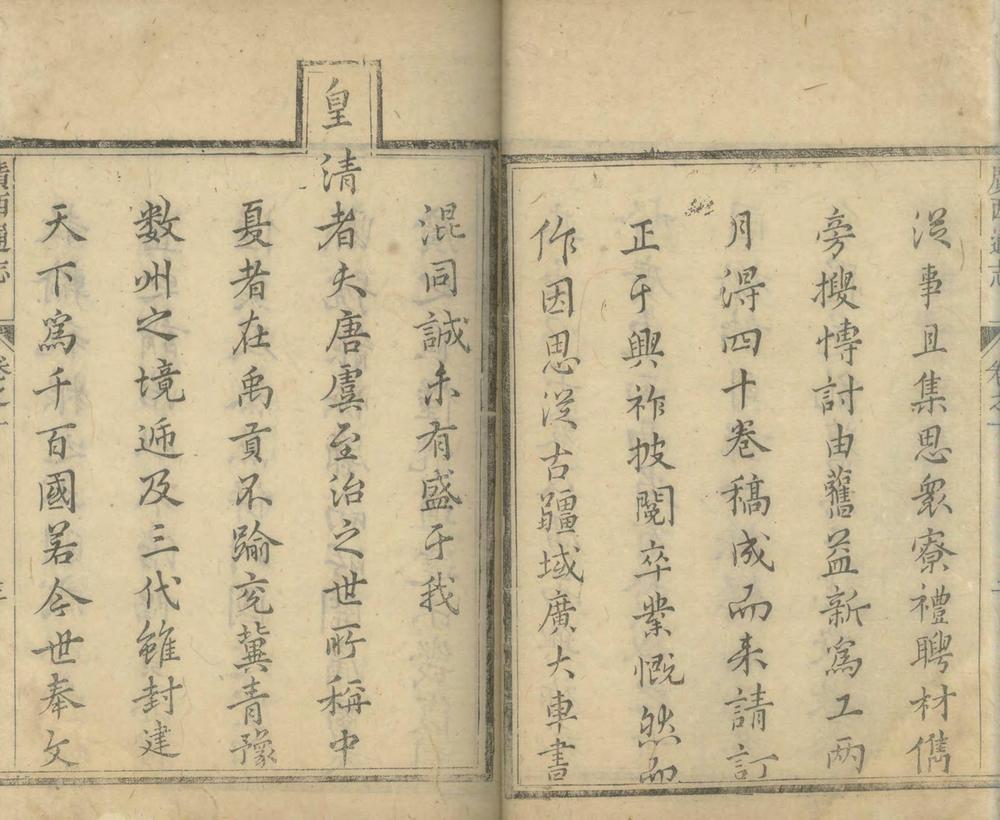 從事且集思眾寮禮聘材儁
旁搜博討由舊益新爲工两
月得四十卷稿成而来請訂
正于興祚披閱卒業慨然而
作因思從古疆域廣大車書
混同誠未有盛于我
皇清者夫唐虞至治之世所稱中
夏者在禹貢不踰兗冀青豫
数州之境遞及三代雖封建
天下爲千百國若今世奉文
廣西通志
卷之一